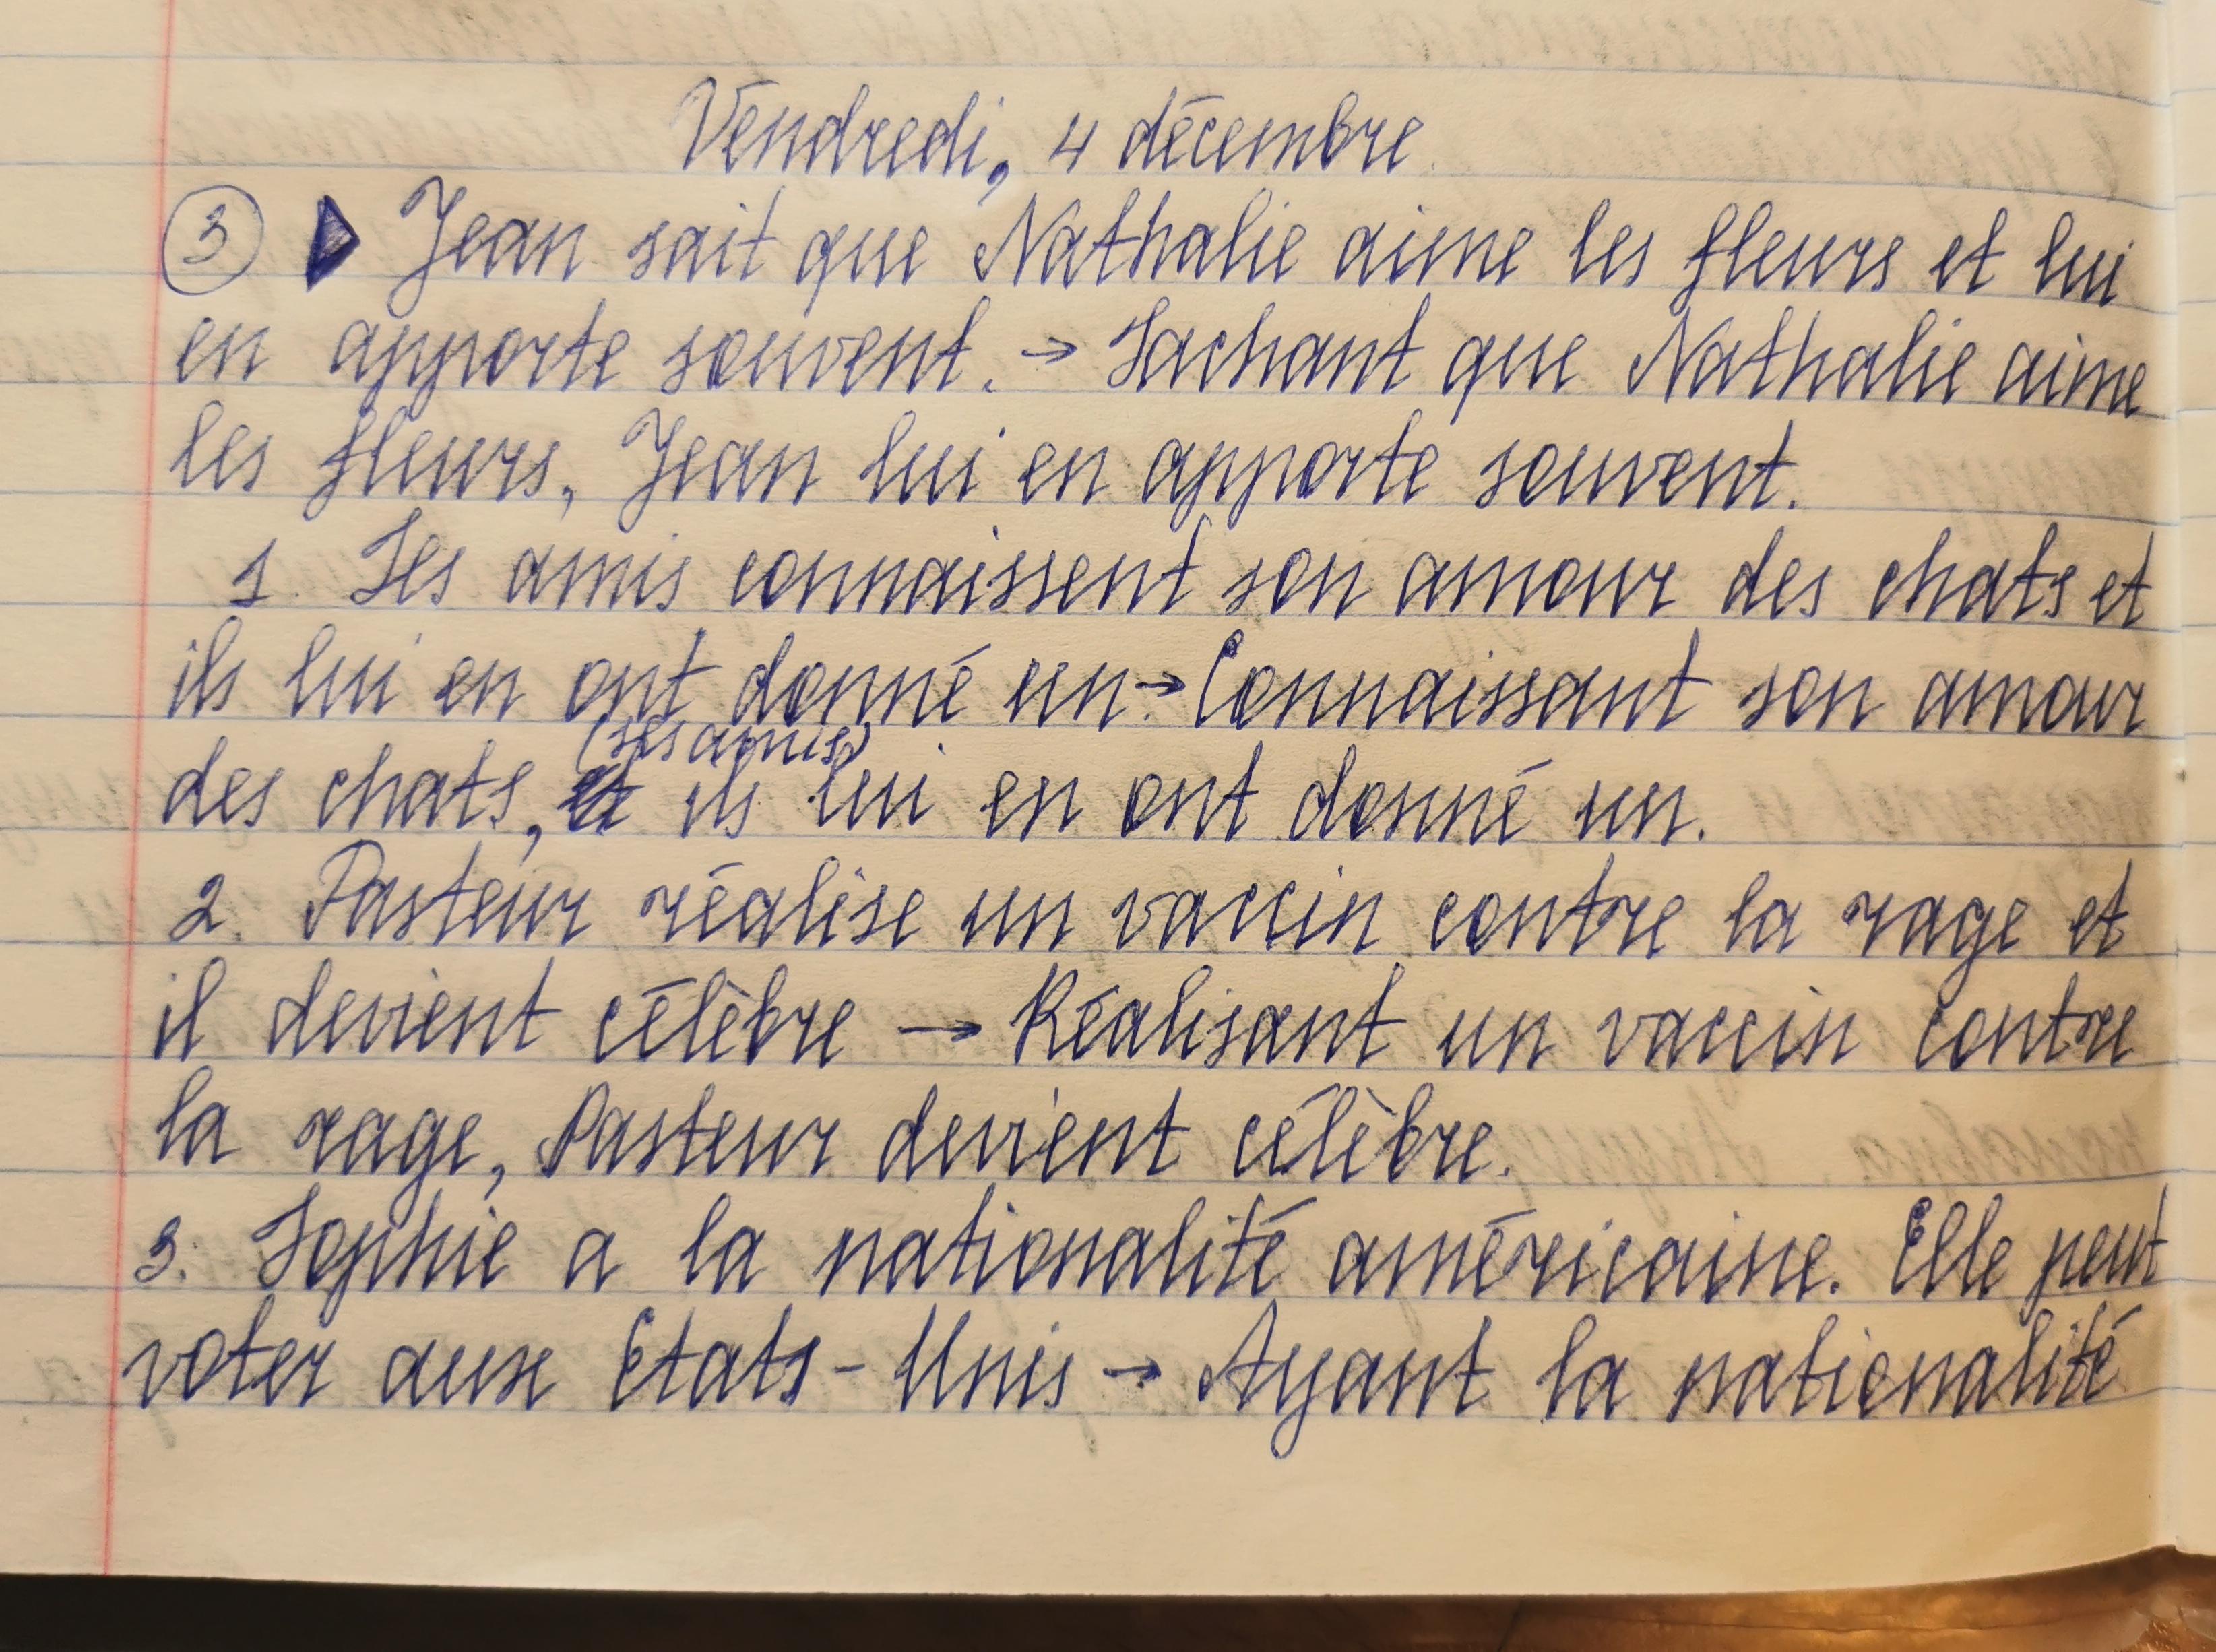 Vendredi, 4 décembre
③ ▶ Jean sait que Nathalie aime les fleurs et lui
en apporte souvent. → Sachant que Nathalie aime
les fleurs, Jean lui en apporte souvent.
1. Ses amis connaissent son amour des chats et
ils lui en ont donné un → Connaissant son amour
(ses amis)
des chats, ils lui en ont donné un.
2. Pasteur réalise un vaccin contre la rage et
il devient célèbre → Réalisant un vaccin contre
la rage, Pasteur devient célèbre.
3. Sophie a la nationalité américaine. Elle peut
voter aux Etats-Unis → Ayant la nationalité